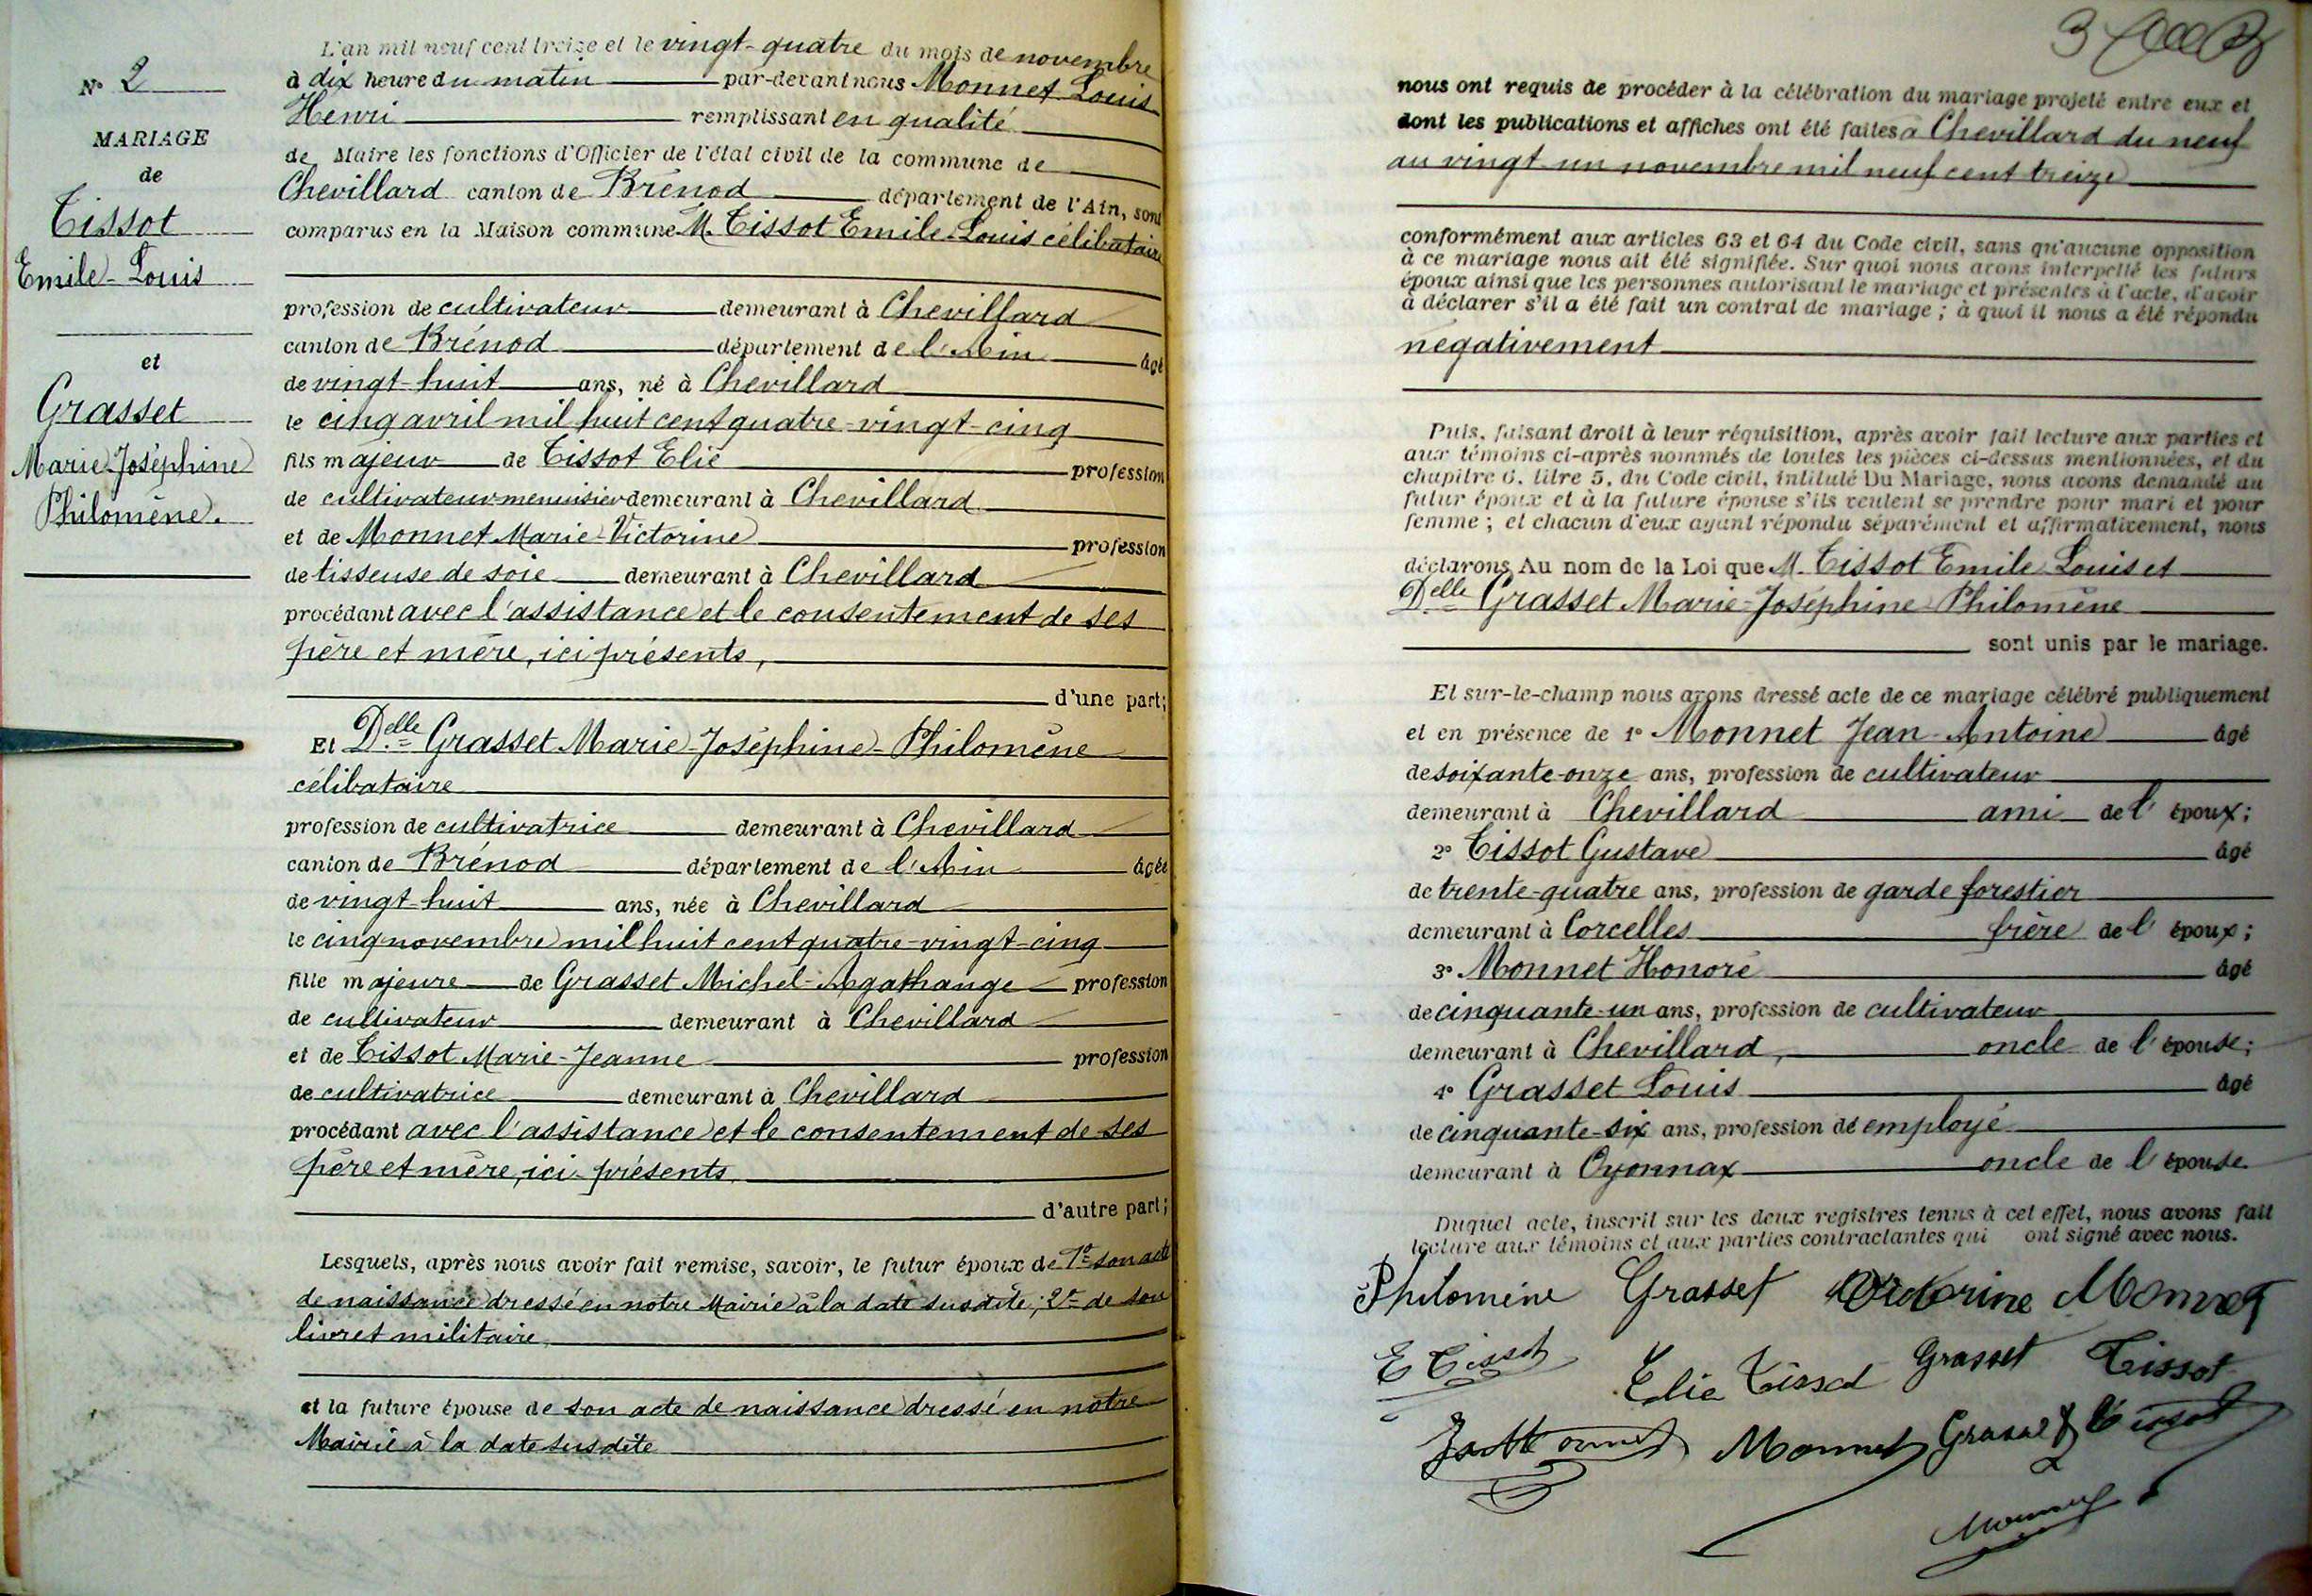 N° 2
MARIAGE
de
Tissot
Emile-Louis
et
Grasset
Marie-Joséphine
Philomène.
L'an mil neuf cent treize et le vingt-quatre du mois de novembre
à dix heure du matin par-devant nous Monnet Louis
Henri remplissant en qualité
de Maire les fonctions d'Officier de l'état civil de la commune de
Chevillard canton de Brénod département de l'Ain, sont
comparus en la Maison commune M. Tissot Emile-Louis célibataire
profession de cultivateur demeurant à Chevillard
canton de Brénod département de l'Ain âgé
de vingt-huit ans, né à Chevillard
le cinq avril mil huit cent quatre-vingt-cinq
fils majeur de Tissot Elie profession
de cultivateur menuisier demeurant à Chevillard
et de Monnet Marie-Victorine profession
de tisseuse de soie demeurant à Chevillard
procédant avec l'assistance et le consentement de ses
père et mère, ici présents,
d'une part;
Et Delle Grasset Marie-Joséphine-Philomène
célibataire
profession de cultivatrice demeurant à Chevillard
canton de Brénod département de l'Ain âgée
de vingt-huit ans, née à Chevillard
le cinq novembre mil huit cent quatre-vingt-cinq
fille majeure de Grasset Michel-Agathange profession
de cultivateur demeurant à Chevillard
et de Tissot Marie-Jeanne profession
de cultivatrice demeurant à Chevillard
procédant avec l'assistance et le consentement de ses
père et mère, ici présents
d'autre part;
Lesquels, après nous avoir fait remise, savoir, le futur époux de 1° son acte
de naissance dressé en notre Mairie à la date susdite; 2° de son
livret militaire
et la future épouse de son acte de naissance dressé en notre
Mairie à la date susdite
3
nous ont requis de procéder à la célébration du mariage projeté entre eux et
dont les publications et affiches ont été faites à Chevillard du neuf
au vingt-un novembre mil neuf cent treize
conformément aux articles 63 et 64 du Code civil, sans qu'aucune opposition
à ce mariage nous ait été signifiée. Sur quoi nous avons interpellé les futurs
époux ainsi que les personnes autorisant le mariage et présentes à l'acte, d'avoir
à déclarer s'il a été fait un contrat de mariage; à quoi il nous a été répondu
négativement
Puis, faisant droit à leur réquisition, après avoir fait lecture aux parties et
aux témoins ci-après nommés de toutes les pièces ci-dessus mentionnées, et du
chapitre 6, titre 5, du Code civil, intitulé Du Mariage, nous avons demandé au
futur époux et à la future épouse s'ils veulent se prendre pour mari et pour
femme; et chacun d'eux ayant répondu séparément et affirmativement, nous
déclarons Au nom de la Loi que M. Tissot Emile Louis et
Delle Grasset Marie-Joséphine-Philomène
sont unis par le mariage.
Et sur-le-champ nous avons dressé acte de ce mariage célébré publiquement
et en présence de 1° Monnet Jean-Antoine âgé
de soixante-onze ans, profession de cultivateur
demeurant à Chevillard ami de l'époux;
2° Tissot Gustave âgé
de trente-quatre ans, profession de garde forestier
demeurant à Corcelles frère de l'époux;
3° Monnet Honoré âgé
de cinquante-un ans, profession de cultivateur
demeurant à Chevillard, oncle de l'épouse;
4° Grasset Louis âgé
de cinquante-six ans, profession de employé
demeurant à Oyonnax oncle de l'épouse.
Duquel acte, inscrit sur les deux registres tenus à cet effet, nous avons fait
lecture aux témoins et aux parties contractantes qui ont signé avec nous.
Philomène Grasset Victorine Monnet
E Tissot Elie Tissot Grasset Tissot
Monnet Grasset Tissot
Monnet